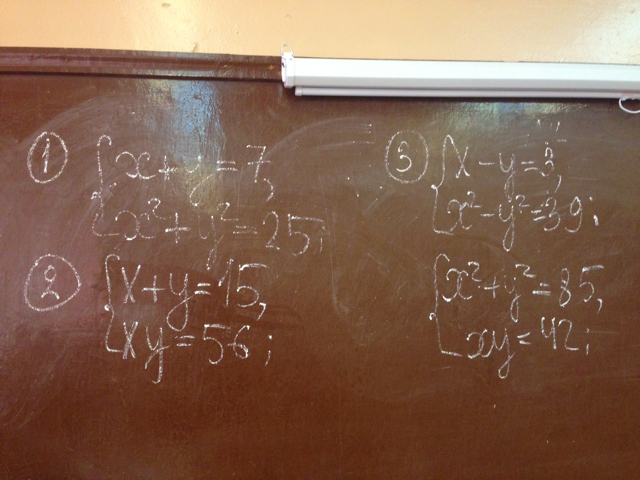 ① { x + y = 7,
x² + y² = 25;
② { x + y = 15,
xy = 56;
③ { x - y = 3,
x² - y² = 39;
{ x² + y² = 85,
xy = 42;